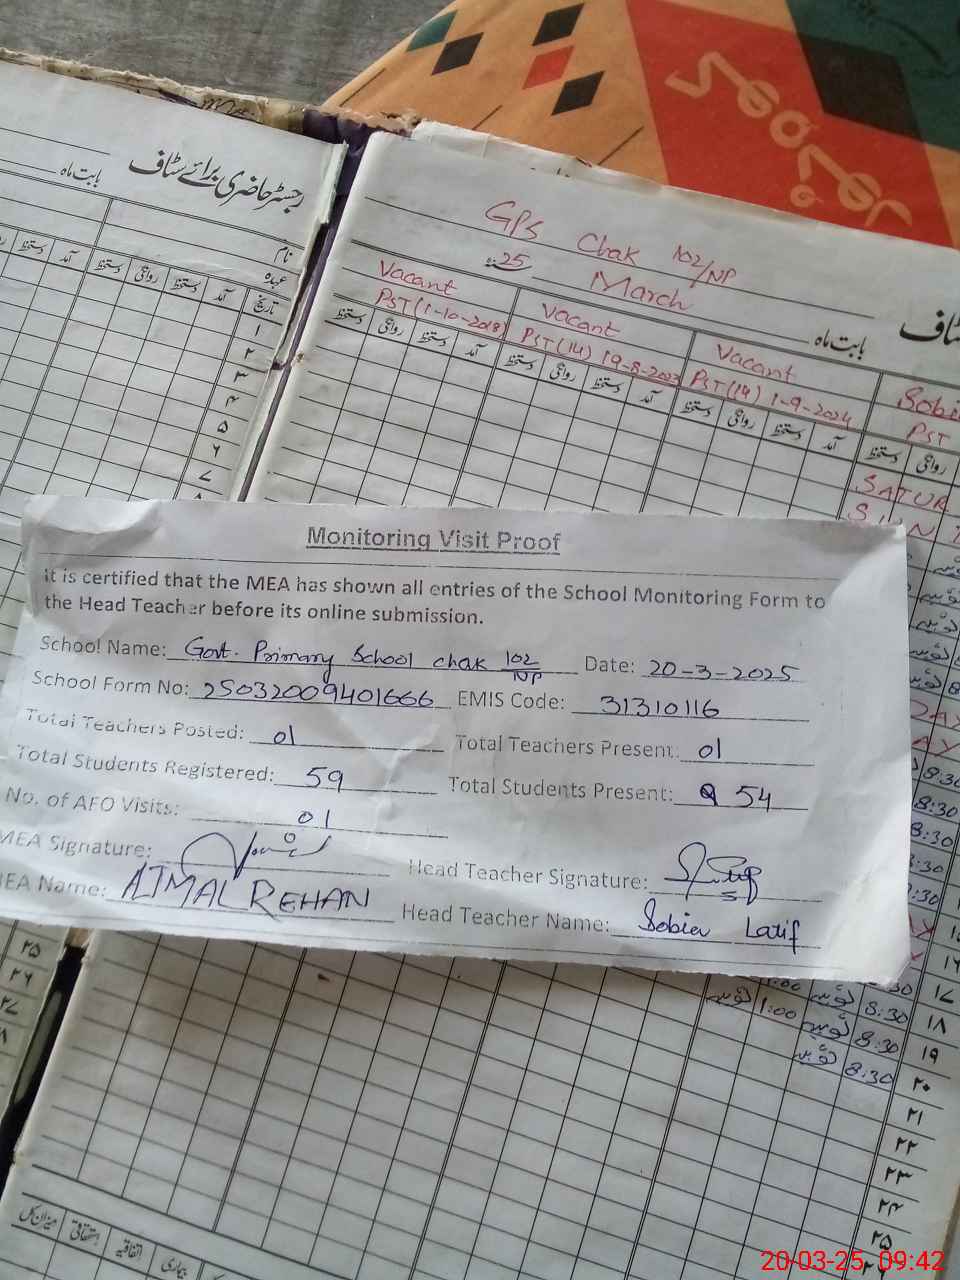 رجسٹر حاضری برائے سٹاف
بابت ماہ
نام
عہدہ
تاریخ
آمد دستخط روانگی دستخط آمد دستخط
۱
۲
۳
۴
۵
۶
۷
GPS Chak 102/NP
25 March
بابت ماہ
Vacant Vacant Vacant
PST (1-10-2018) PST (14) 19-8-2023 PST (14) 1-9-2024 PST
آمد دستخط روانگی دستخط
آمد دستخط روانگی دستخط
آمد دستخط روانگی دستخط
روانگی دستخط
SATUR
SUN
Monitoring Visit Proof
It is certified that the MEA has shown all entries of the School Monitoring Form to
the Head Teacher before its online submission.
School Name: Govt. Primary School chak 102/NP Date: 20-3-2025
School Form No: 25032009401666 EMIS Code: 31310116
Total Teachers Posted: 01 Total Teachers Present: 01
Total Students Registered: 59 Total Students Present: 54
No. of AFO Visits: 01
MEA Signature: Head Teacher Signature:
MEA Name: AJMAL REHAN Head Teacher Name: Sobia Latif
8:30
8:30
8:30
8:30
8:30
۱۷
1:00 8:30 ۱۸
8:30 ۱۹
8:30 ۲۰
۲۱
۲۲
۲۳
۲۴
۲۵
۲۵
۲۶
۲۷
میزان کل استحقاقی اتفاقیہ بیماری
20-03-25 09:42